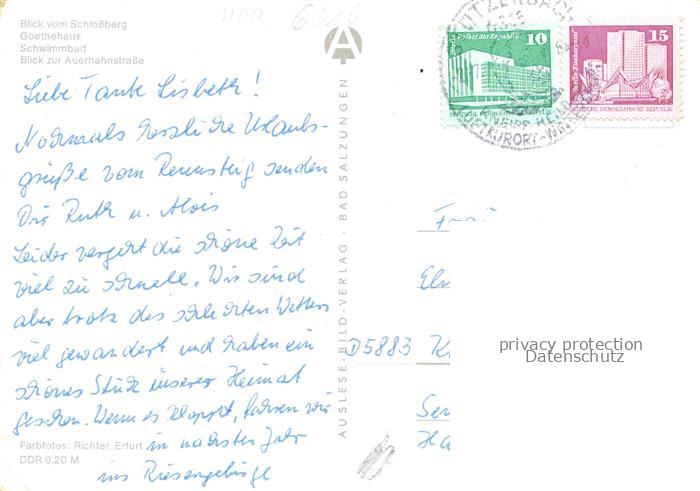 Blick vom Schloßberg
Goethehaus
Schwimmbad
Blick zur Auerhahnstraße
Liebe Tante Lisbeth!
Nochmals herzliche Urlaubs-
grüße vom Rennsteig senden
Dir Ruth u. Alois
Leider vergeht die schöne Zeit
viel zu schnell. Wir sind
aber trotz des schlechten Wetters
viel gewandert und haben ein
schönes Stück unserer Heimat
gesehen. Wenn es klappt, fahren wir
in nächsten Jahr
ins Riesengebirge
Farbfotos: Richter, Erfurt
DDR 0,20 M
AUSLESE-BILD-VERLAG · BAD SALZUNGEN
STÜTZERBACH
KURORT
Berlin, Palast der Republik 10
DEUTSCHE DEMOKRATISCHE REPUBLIK
Berlin, Fischerinsel 15
DEUTSCHE DEMOKRATISCHE REPUBLIK
Frau
D5883
privacy protection
Datenschutz